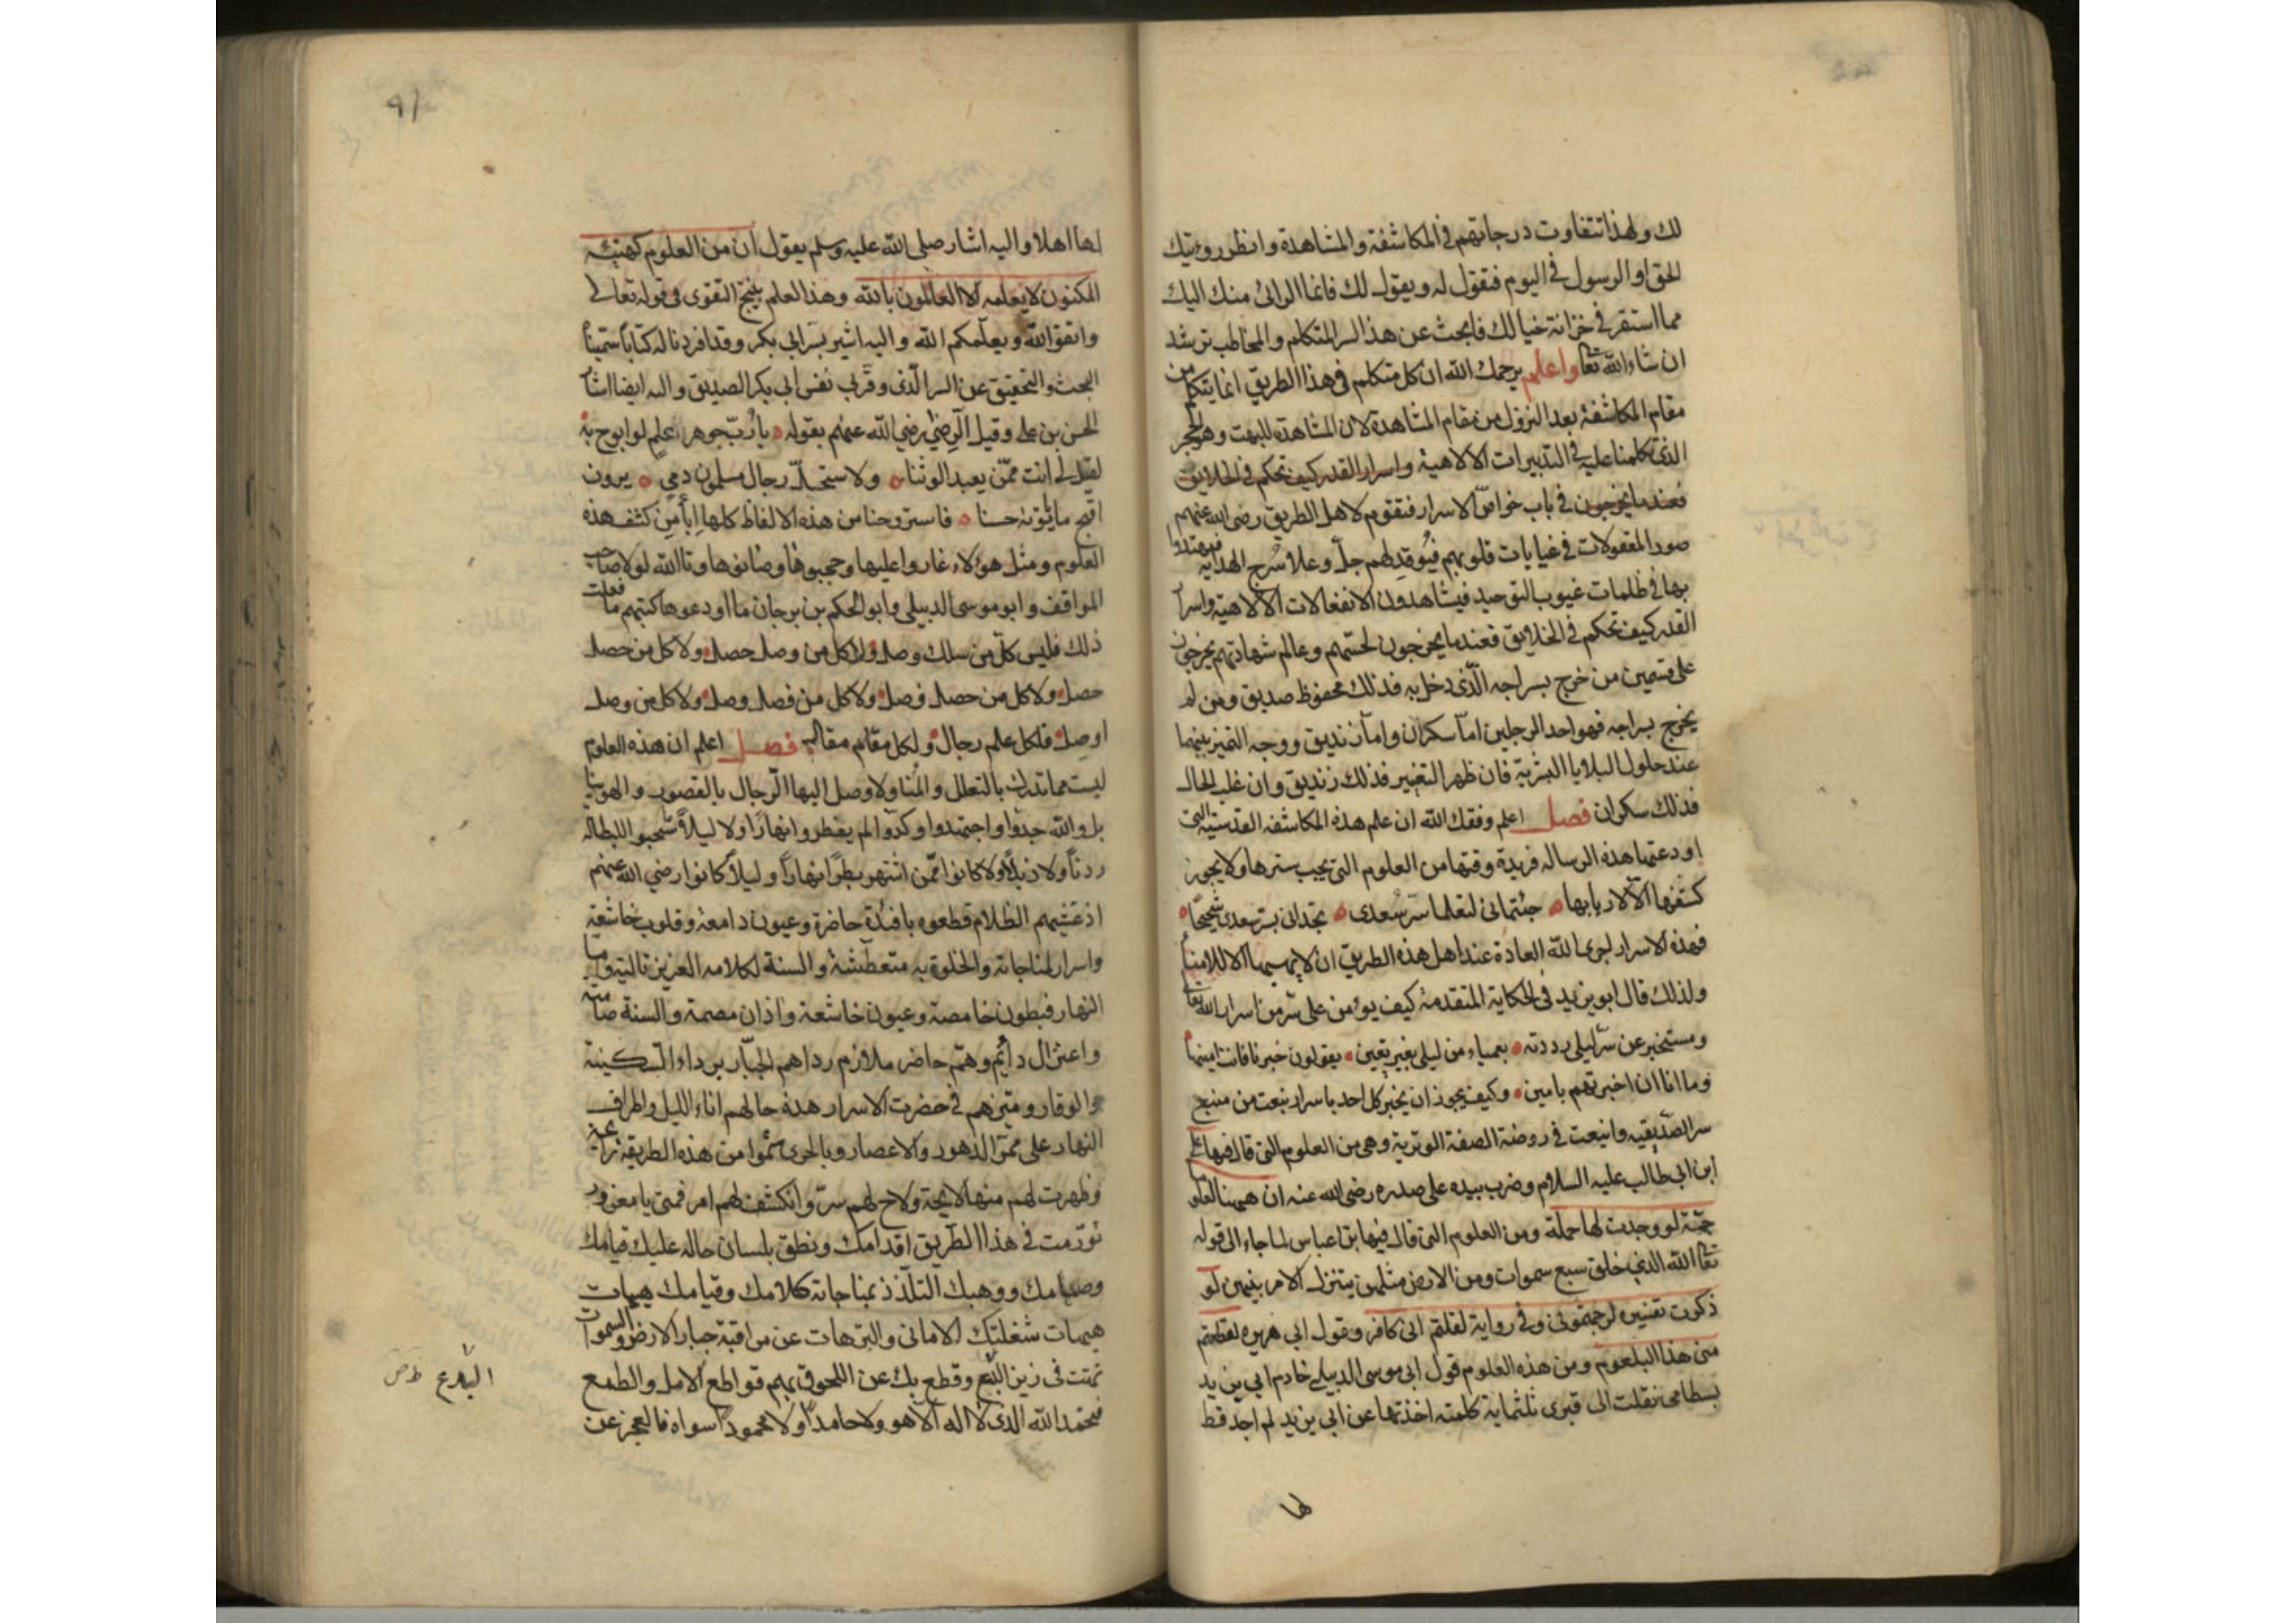 لك ولهذا تتفاوت درجاتهم في المكاشفة والمشاهدة وانظر رويتك
الحق او الرسول في اليوم فتقول له ويقول لك فانما الرائ منك اليك
مما استقر في خزانة خيالك فابحث عن هذا السر المتكلم والمخاطب ترشد
ان شاء الله تعا واعلم يرحمك الله ان كل متكلم في هذا الطريق انما يتكلم من
مقام المكاشفة بعد النزول من مقام المشاهدة لان المشاهدة للبهت وهو الحجر
الذي تكلمنا عليه في التدبيرات الالاهية واسرار القدر كيف تحكم في الخلايق
فعند ما يخرجون في باب خواص الاسرار فتقوم لاهل الطريق رضى الله عنهم
صور المعقولات في غيابات قلوبهم فيوقد لهم جل وعلا سرج الهداية فيهتدوا
بها في ظلمات غيوب التوحيد فيشاهدون الانفعالات الالاهية واسرار
القدر كيف تحكم في الخلايق فعند ما يخرجون لحسهم وعالم شهادتهم يخرجون
على قسمين من خرج بسراجه الذي دخل به فذلك محفوظ صديق ومن لم
يخرج بسراجه فهو احد الرجلين اما سكران واما زنديق ووجه التميز بينهما
عند حلول البلايا البشرية فان ظهر التغيير فذلك زنديق وان غلب الحال
فذلك سكران فصل اعلم وفقك الله ان علم هذه المكاشفه القدسيه التى
اودعتها هذه الرساله فريدة وقتها من العلوم التى يجب سترها ولا يجوز
كشفها الا لاربابها جئتمانى لتعلما سر سعدى تجدانى بسر سعدى شحيحا
فهذه الاسرار اجرى الله العادة عند اهل هذه الطريق ان لا يهبها الا للامنا
ولذلك قال ابو يزيد في الحكاية المتقدمة كيف يؤمن على سر من اسرار الله تعا
ومستخبر عن سر ليلى رددته بعمياء من ليلى بغير يقين يقولون خبرنا فانت امينها
وما انا ان اخبرتهم بامين وكيف يجوز ان يخبر كل احد باسرار نبعت من منبع
سر الصديقيه وانبعت في روضة الصفة الوترية وهى من العلوم التى قال فيها على
ابن ابى طالب عليه السلام وضرب بيده على صدره رضى الله عنه ان ههنا لعلوما
جمة لو وجدت لها حملة ومن العلوم التى قال فيها ابن عباس لما جاء الى قوله
تعا الله الذي خلق سبع سموات ومن الارض مثلهن يتنزل الامر بينهن لو
ذكرت تفسيره لرجمتمونى وفي رواية لقلتم انى كافر وقول ابى هريره لقطعتم
منى هذا البلعوم ومن هذه العلوم قول ابى موسى الدبيلى خادم ابى يزيد
بسطامى نقلت الى قبرى ثلثماية كلمة اخذتها عن ابى يزيد لم اجد قط
لها
٩١
لها اهلا واليه اشار صلى الله عليه وسلم يقول ان من العلوم كهيئه
المكنون لا يعلمه الا العالمون بالله وهذا العلم ينتج التقوى في قوله تعالى
واتقوا الله ويعلمكم الله واليه اشير بسر ابى بكر وقد افردنا له كتابا سميناه
البحث والتحقيق عن السر الذي وقر في نفس ابى بكر الصديق واليه ايضا اشار
الحسن بن على وقيل الرضى رضى الله عنهم بقوله يا رب جوهر علم لو ابوح به
لقيل لى انت ممن يعبد الوثنا ولا ستحل رجال مسلمون دمى يرون
اقبح ما يأتونه حسنا فاستروحنا من هذه الالفاظ كلها كشف هذه
العلوم ومثل هؤلاء غاروا عليها وحجبوها وصانوها وتالله لولا صاحب
المواقف وابو موسى الدبيلى وابو الحكم بن برجان ما اودعوها كتبهم ما فعلت
ذلك فليس كل من سلك وصل ولا كل من وصل حصل ولا كل من حصل
حصل ولا كل من حصل فصل ولا كل من فصل وصل ولا كل من وصل
اوصل فلكل علم رجال ولكل مقام مقال فصل اعلم ان هذه العلوم
ليست مما تدرك بالتعلل والمنا ولا وصل اليها الرجال بالقصور والهوينا
بل والله جدوا واجتهدوا وكدوا لم يفطروا نهارا ولا ليلا سحبوا للبطاله
ردنا ولا ذيلا ولا كانوا ممن اشتهر بطرا نهارا وليلا كانوا رضى الله عنهم
اذ غشيهم الظلام قطعوه بافئدة حاضرة وعيون دامعة وقلوب خاشعة
واسرار لمناجاته والخلوة به متعطشة والسنة لكلامه العزيز تالية واما
النهار فبطون خامصة وعيون خاشعة واذان مصمة والسنة صامتة
واعتزال دائم وهم حاضر ملازم رداهم الجبار برداء السكينة
والوقار وميزهم في حضرت الاسرار هذه حالهم اناء الليل واطراف
النهار على ممر الدهور والاعصار وبالحرى شموا من هذه الطريقة رائحة
وظهرت لهم منها لايحة ولاح لهم سر وانكشف لهم امر فمتى يا مغرور
تورمت في هذا الطريق اقدامك ونطق بلسان حاله عليك قيامك
وصيامك ووهبك التلذذ بمناجاته كلامك وقيامك هيهات
هيهات شغلتك الامانى والترهات عن مراقبة جبار الارض والسموات
تمتت فى زين وقطع بك عن اللحوق بهم قواطع الامل والطمع
فنحمد الله الذى لا اله الا هو ولا حامدا ولا محمودا سواه فالعجز عن